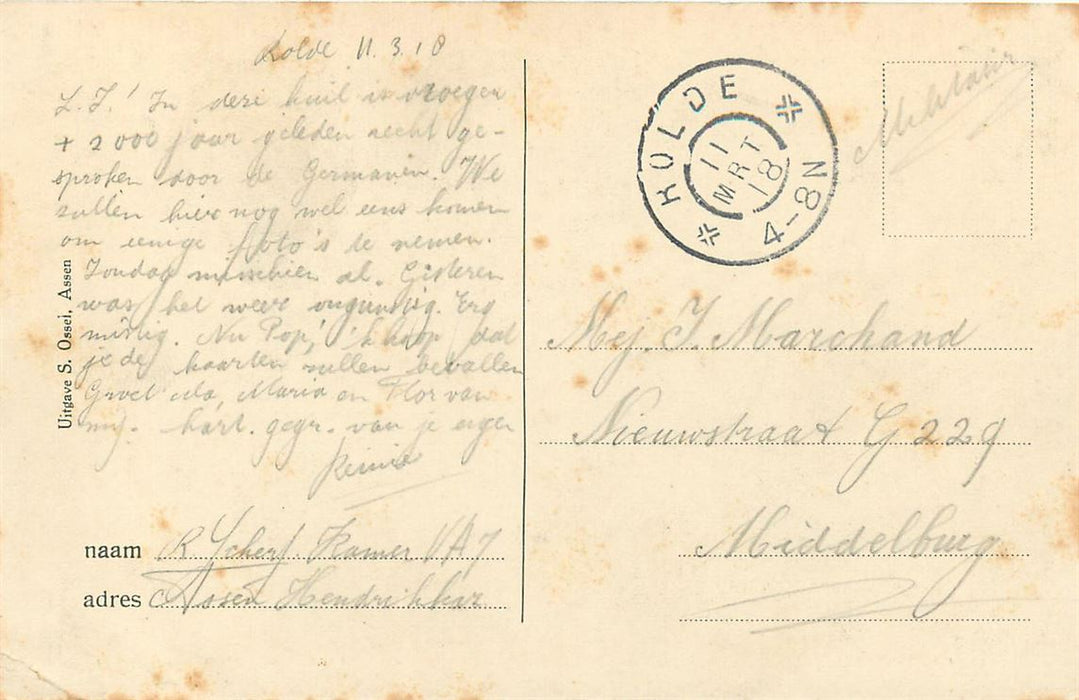 Rolde 11.3.18
L.J.! In deze kuil is vroegen
+ 2000 jaar geleden recht ge-
sproken door de Germanen. We
zullen hier nog wel eens komen
om eenige foto's te nemen.
Zondag misschien al. Gisteren
was het weer ongunstig. Erg
mistig. Nu Pop, 'k hoop dat
je de kaarten zullen bevallen
Groet Ma, Maria en Flor van
mij. hart. gegr. van je eigen
Reinie
naam R Scherf. Kamer VA7
adres Assen Hendrikkaz
Uitgave S. Ossei, Assen
ROLDE
11 MRT 18
4-8N
Militair
Mej. J. Marchand
Nieuwstraat G 229
Middelburg